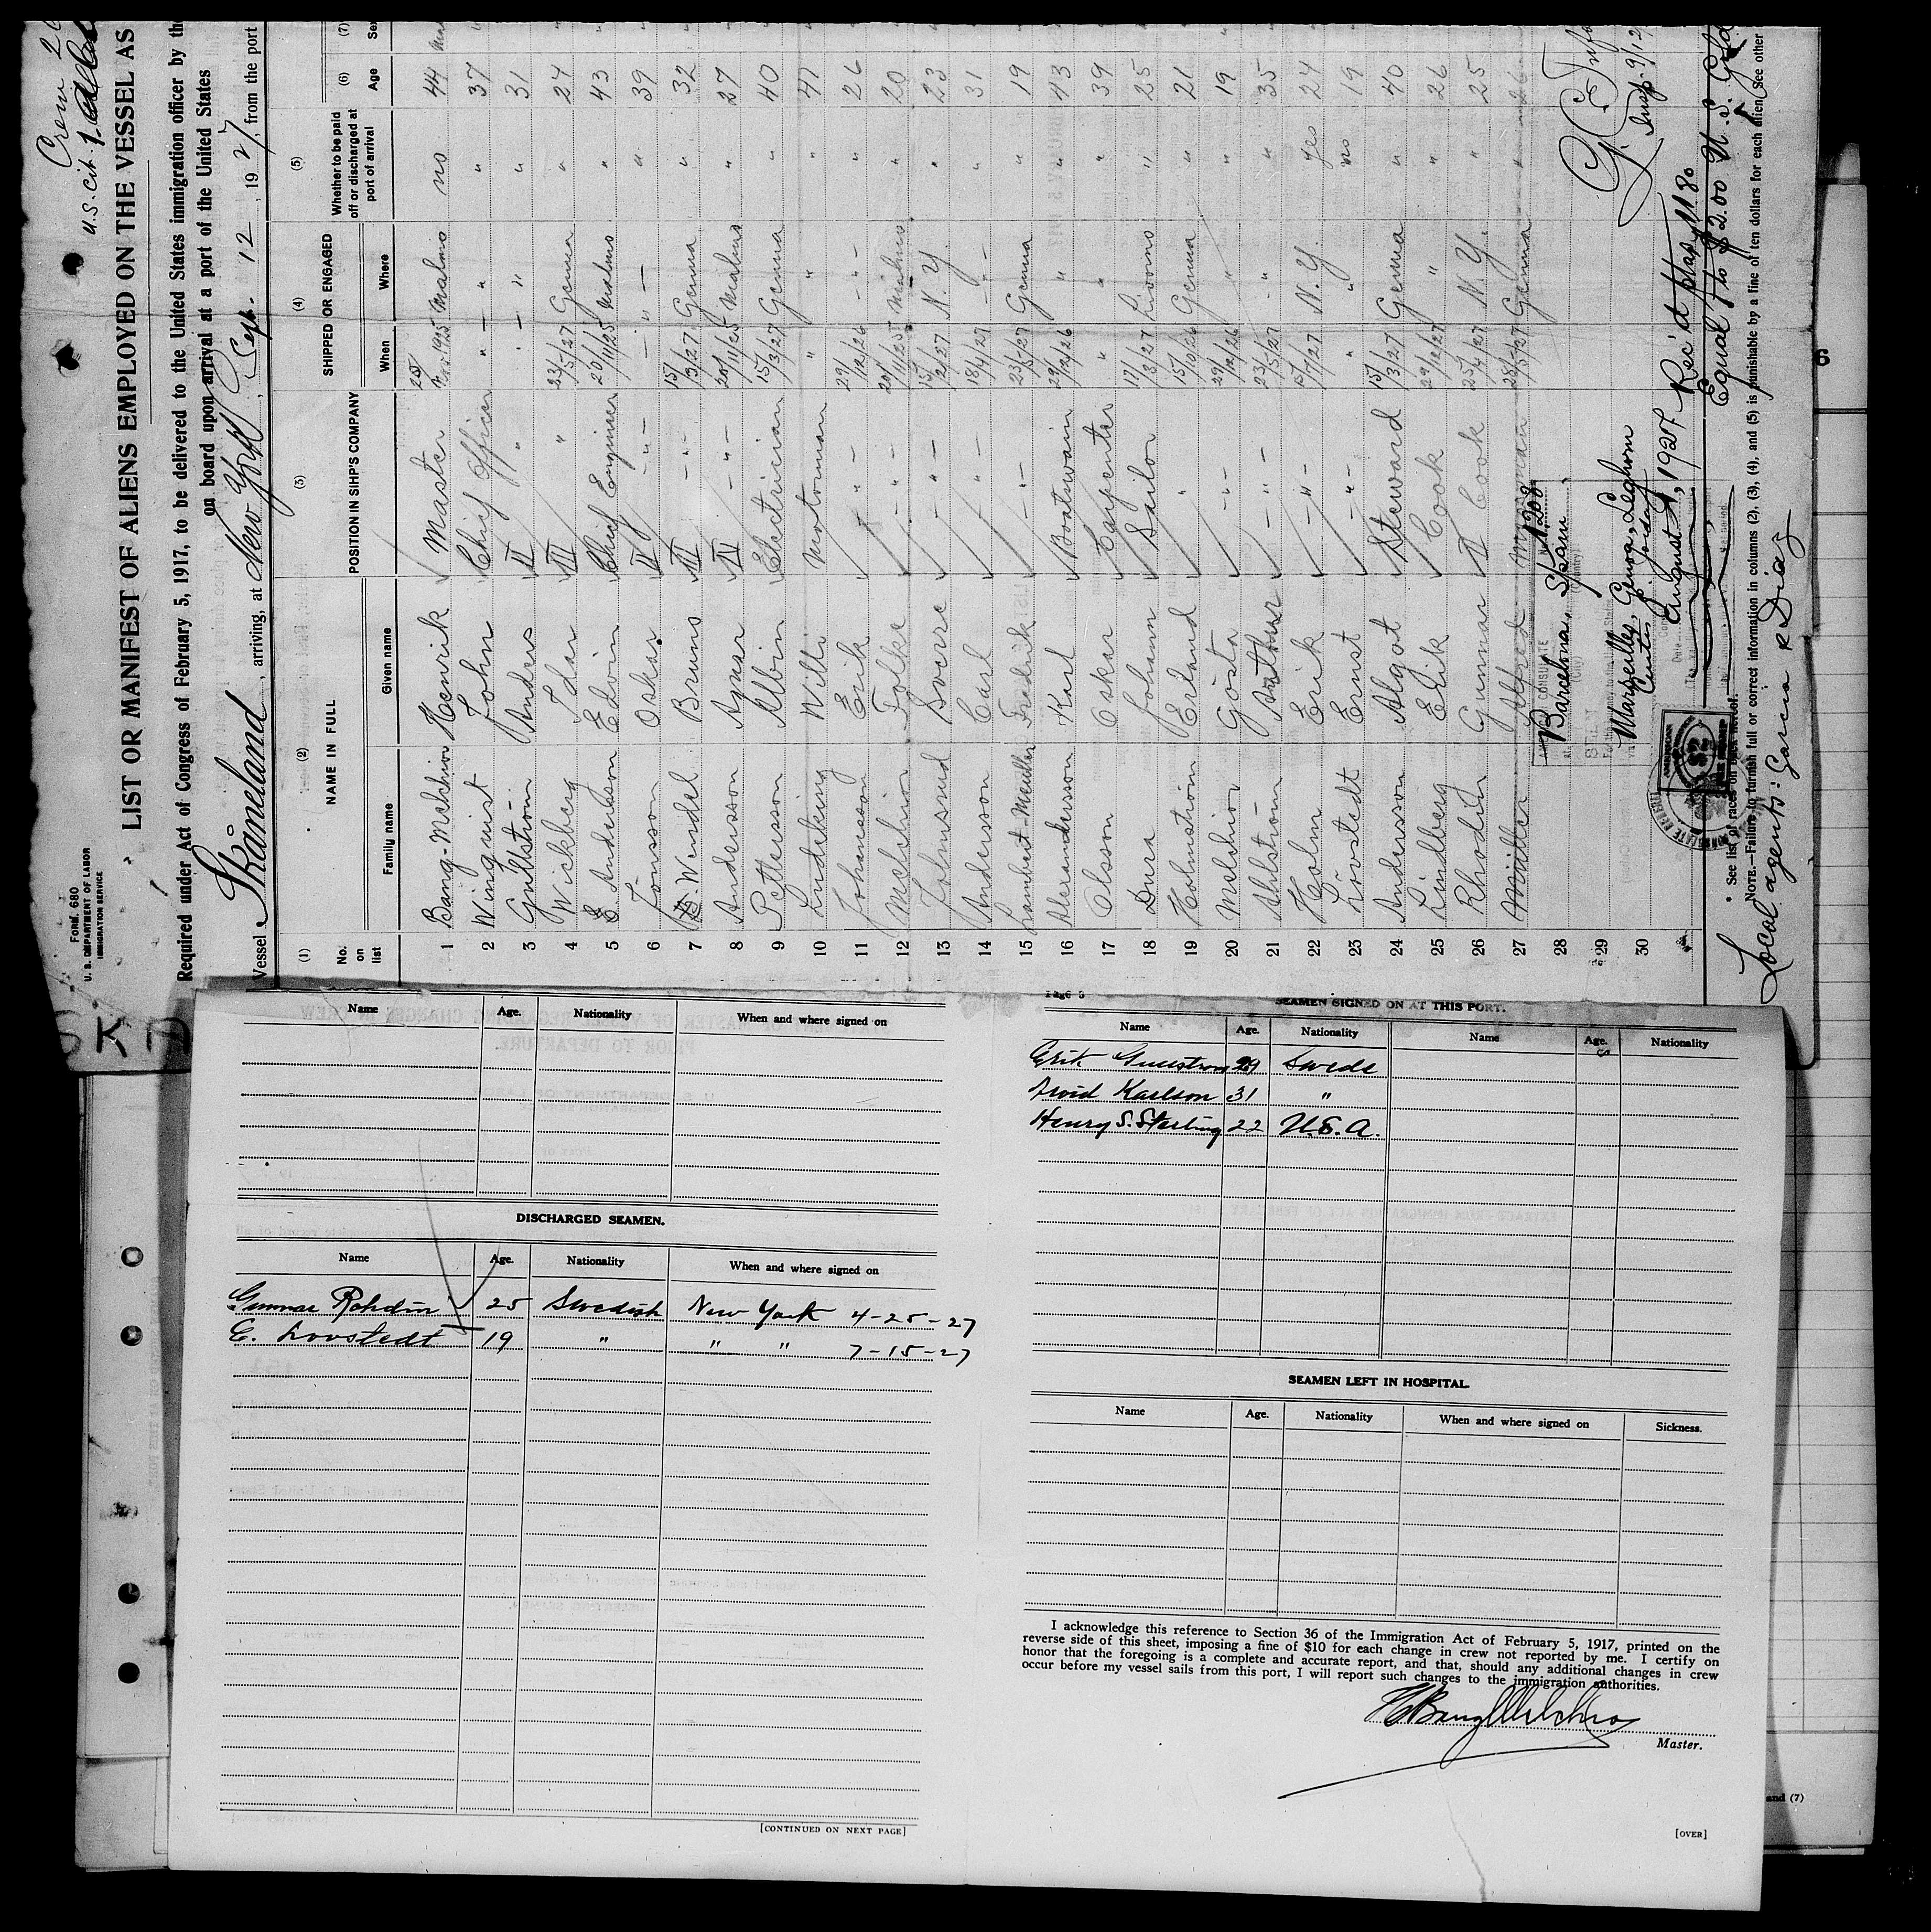 Crew 26
U.S. Cit. 1.
FORM 680
U. S. DEPARTMENT OF LABOR
IMMIGRATION SERVICE
LIST OR MANIFEST OF ALIENS EMPLOYED ON THE VESSEL AS
Required under Act of Congress of February 5, 1917, to be delivered to the United States immigration officer by the
on board upon arrival at a port of the United States
Vessel Skåneland, arriving, at New York, Sept. 12, 1927, from the port
(1) (2) (3) (4) (5) (6) (7)
No. on list NAME IN FULL POSITION IN SIHP'S COMPANY SHIPPED OR ENGAGED Whether to be paid off or discharged at port of arrival Age Se
Family name Given name When Where
1 Bang-Melchior Henrik Master 1925 Malmo no 44
2 Winquist John Chief Officer " " " 37
3 Gullström Anders II " " " " 31
4 Wickberg Idar III " 23/5/27 Genua " 24
5 E. Andersson Edvin Chief Engineer 20/11/25 Malmo " 43
6 Jönsson Oskar II " " " " 39
7 Windel Bruno III " 15/3/27 Genua " 32
8 Andersson Agnar IV " 20/11/25 Malmo " 27
9 Pettersson Albin Electrician 15/3/27 Genua " 40
10 Lindeking Willi Motorman " " " 47
11 Johansson Erik " 29/12/26 " " 26
12 Melchior Folke " 20/11/25 Malmo " 20
13 Johnsrud Sverre " N.Y. " 23
14 Andersson Carl " 18/4/27 " " 31
15 Lambert-Meuller Fredrick " 23/5/27 Genua " 19
16 Alexandersson Karl Boatswain 29/12/26 " " 43
17 Olsson Oskar Carpenter " " " 39
18 Dura Johann Sailor 17/3/27 Livorno " 25
19 Holmström Erland " 15/10/26 Genua " 21
20 Melchior Gösta " 29/12/26 " " 19
21 Ahlström Arthur " 23/5/27 " " 35
22 Holm Erik " 15/7/27 N.Y. yes 24
23 Lövstedt Ernst " " " no 19
24 Andersson Algot Steward 15/3/27 Genua " 40
25 Lindberg Erik Cook 29/12/27 " " 26
26 Rhodin Gunnar II Cook 25/4/27 N.Y. " 25
27 Müller Alfred Genua 26
28
29
30
CONSULATE
No. 1208
At Barcelona, Spain
(City) (Country)
Marseilles, Genoa, Leghorn
August 1, 1927
Rec'd ptas 11.80
Equal to $2.00 U.S. Gold
Insp. 9/12
* See list of races on back hereof.
NOTE.—Failure to furnish full or correct information in columns (2), (3), (4), and (5) is punishable by a fine of ten dollars for each alien. See other
Local agents: Garcia & Diaz
SKA
6
Name Age. Nationality When and where signed on
DISCHARGED SEAMEN.
Name Age. Nationality When and where signed on
Gunnar Rohdin 25 Swedish New York 4-25-27
E. Lovstedt 19 " " " 7-15-27
[CONTINUED ON NEXT PAGE]
Page 5
SEAMEN SIGNED ON AT THIS PORT.
Name Age. Nationality Name Age. Nationality
Erik 29 Swede
Arvid Karlson 31 "
Henry S. Sterling 22 U.S.A.
SEAMEN LEFT IN HOSPITAL.
Name Age. Nationality When and where signed on Sickness.
I acknowledge this reference to Section 36 of the Immigration Act of February 5, 1917, printed on the
reverse side of this sheet, imposing a fine of $10 for each change in crew not reported by me. I certify on
honor that the foregoing is a complete and accurate report, and that, should any additional changes in crew
occur before my vessel sails from this port, I will report such changes to the immigration authorities.
H Bang Melchior
Master.
[OVER]
and (7)